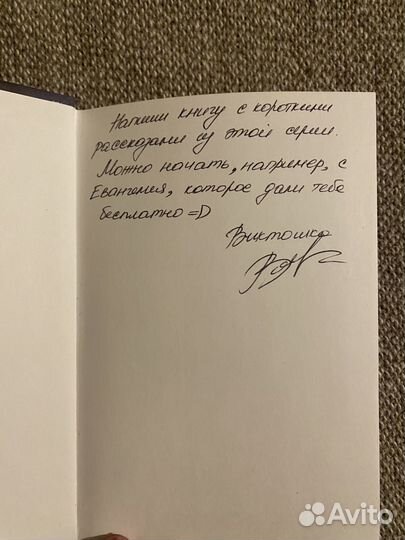 Напиши книгу с короткими
рассказами из этой серии.
Можно начать, например, с
Евангелия, которое дали тебе
бесплатно =D
Виктошка
Avito